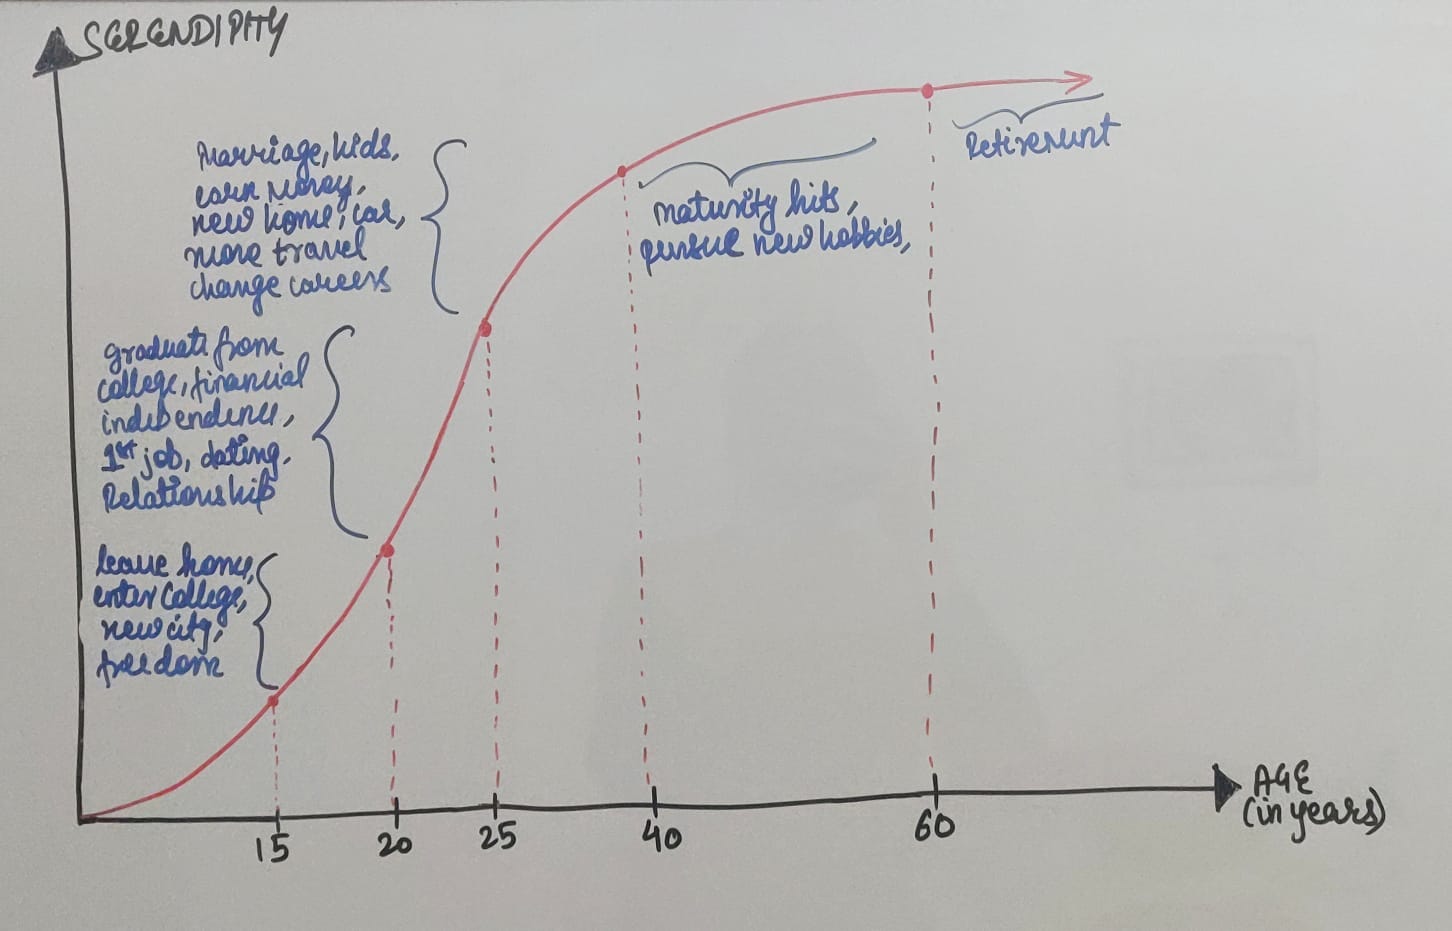 SERENDIPITY
Marriage, kids,
earn money,
new home, car,
more travel
change careers
graduate from
college, financial
independence,
1st job, dating,
Relationship
leave home,
enter college,
new city,
freedom
maturity hits,
pursue new hobbies,
Retirement
15
20
25
40
60
AGE
(in years)